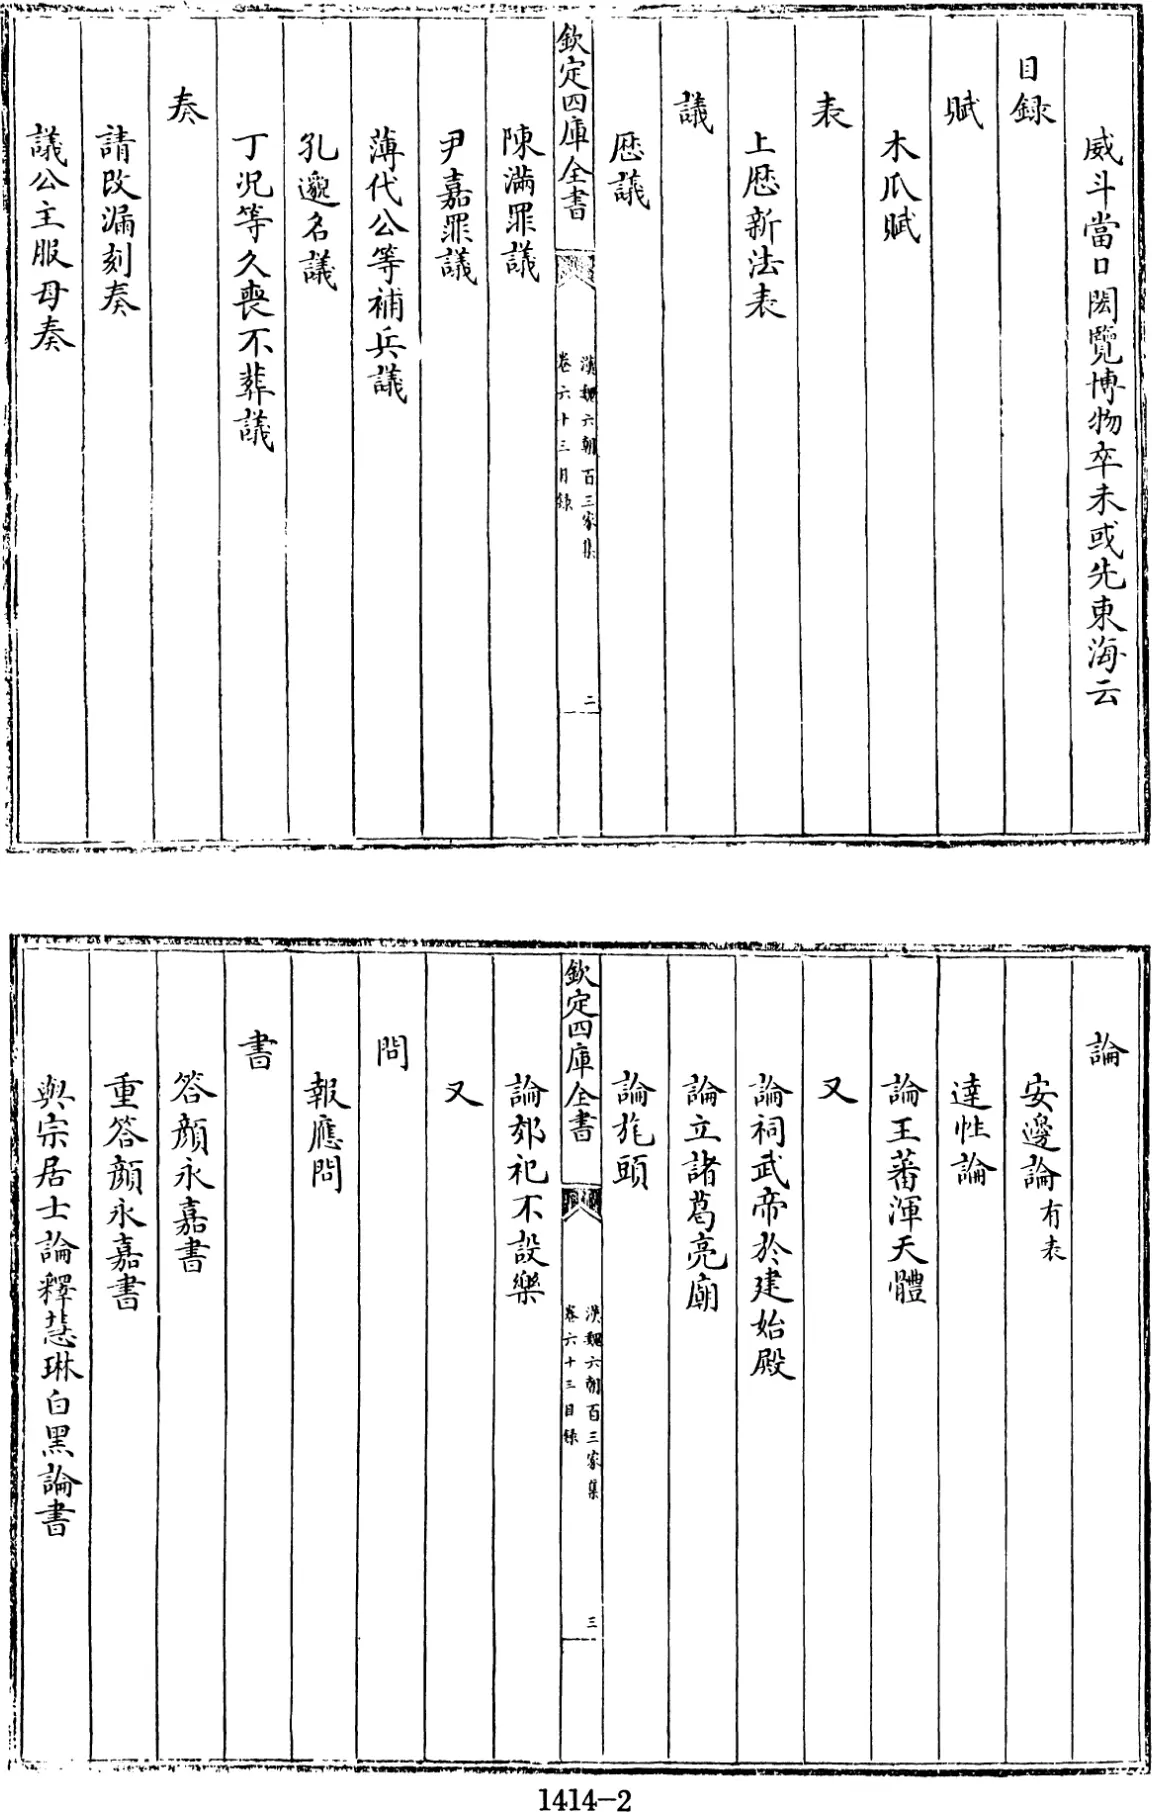 威斗當日閎覽博物卒未或先東海云
目録
賦
木瓜賦
表
上厯新法表
議
厯議
欽定四庫全書
漢魏六朝百三家集
卷六十三目録
二
陳滿罪議
尹嘉罪議
薄代公等補兵議
孔邈名議
丁況等久喪不葬議
奏
請改漏刻奏
議公主服母奏
論
安邊論有表
達性論
論王蕃渾天體
又
論祠武帝於建始殿
論立諸葛亮廟
論旄頭
欽定四庫全書
漢魏六朝百三家集
卷六十三目録
三
論郊祀不設樂
又
問
報應問
書
答顏永嘉書
重答顏永嘉書
與宗居士論釋慧琳白黑論書
1414-2